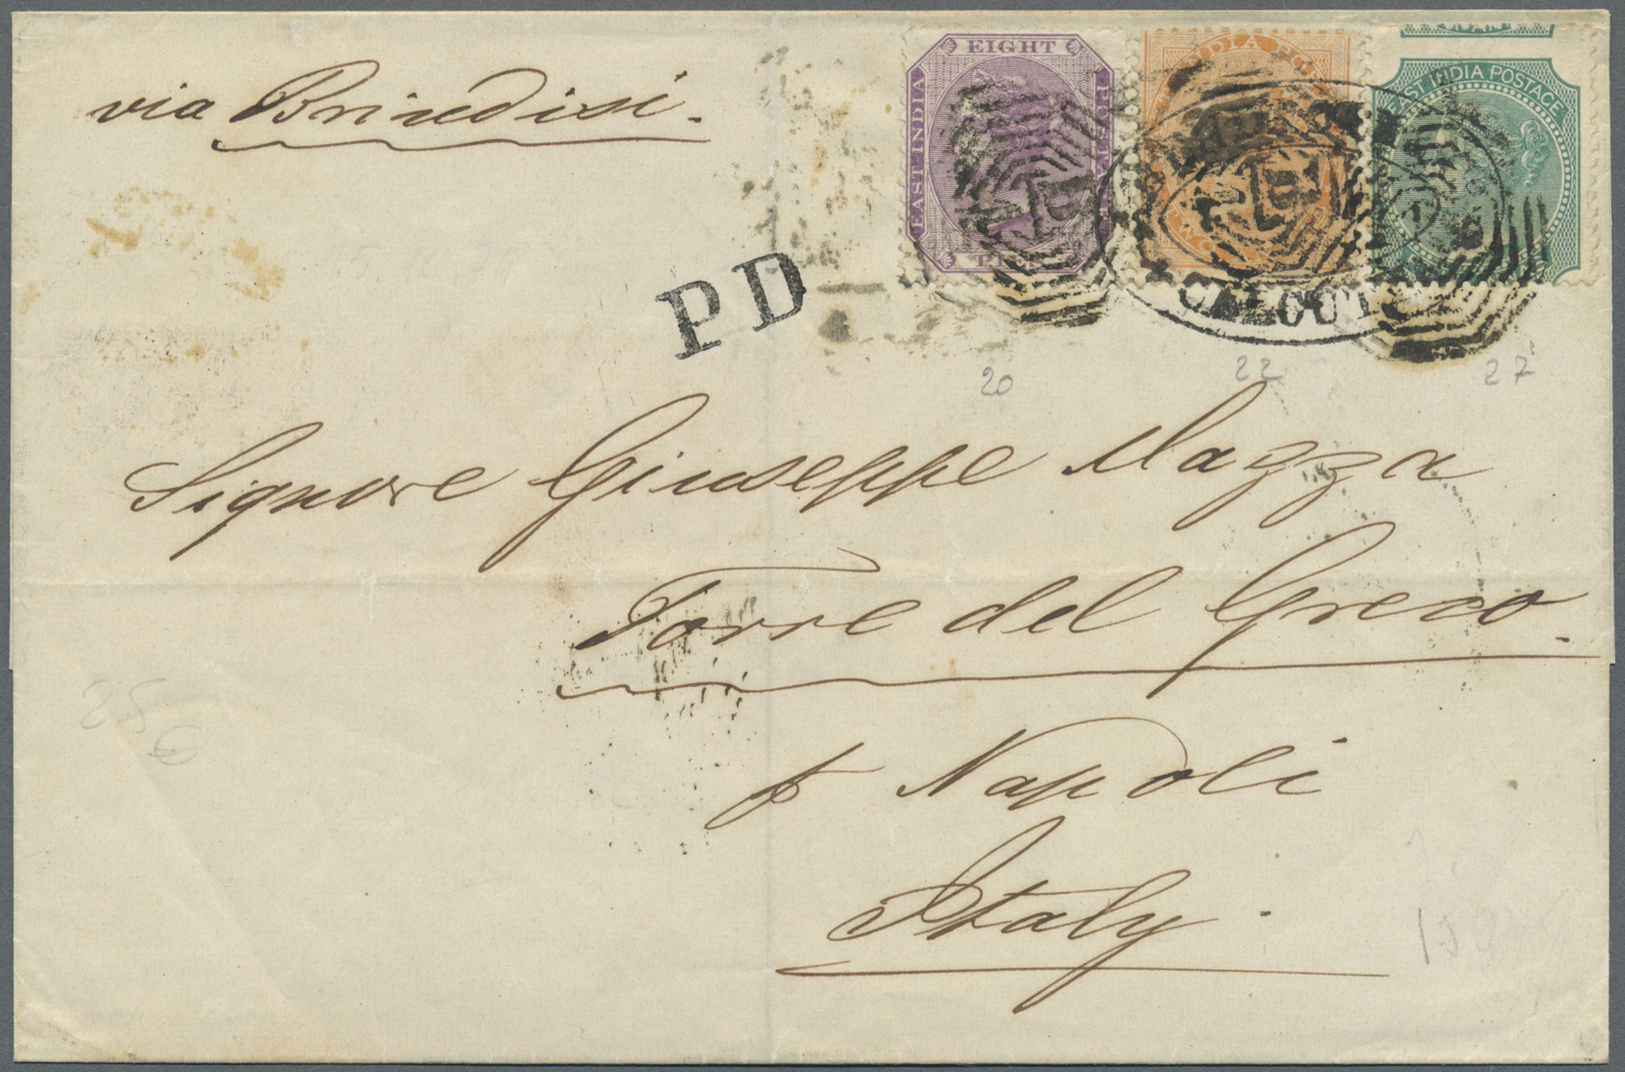 via Brindisi.
EIGHT
EAST INDIA
PIES
INDIA POS
EAST INDIA POSTAGE
CALCUT
P D
20
22
27
Signore Giuseppe Mazza
Torre del Greco.
p Napoli
Italy.